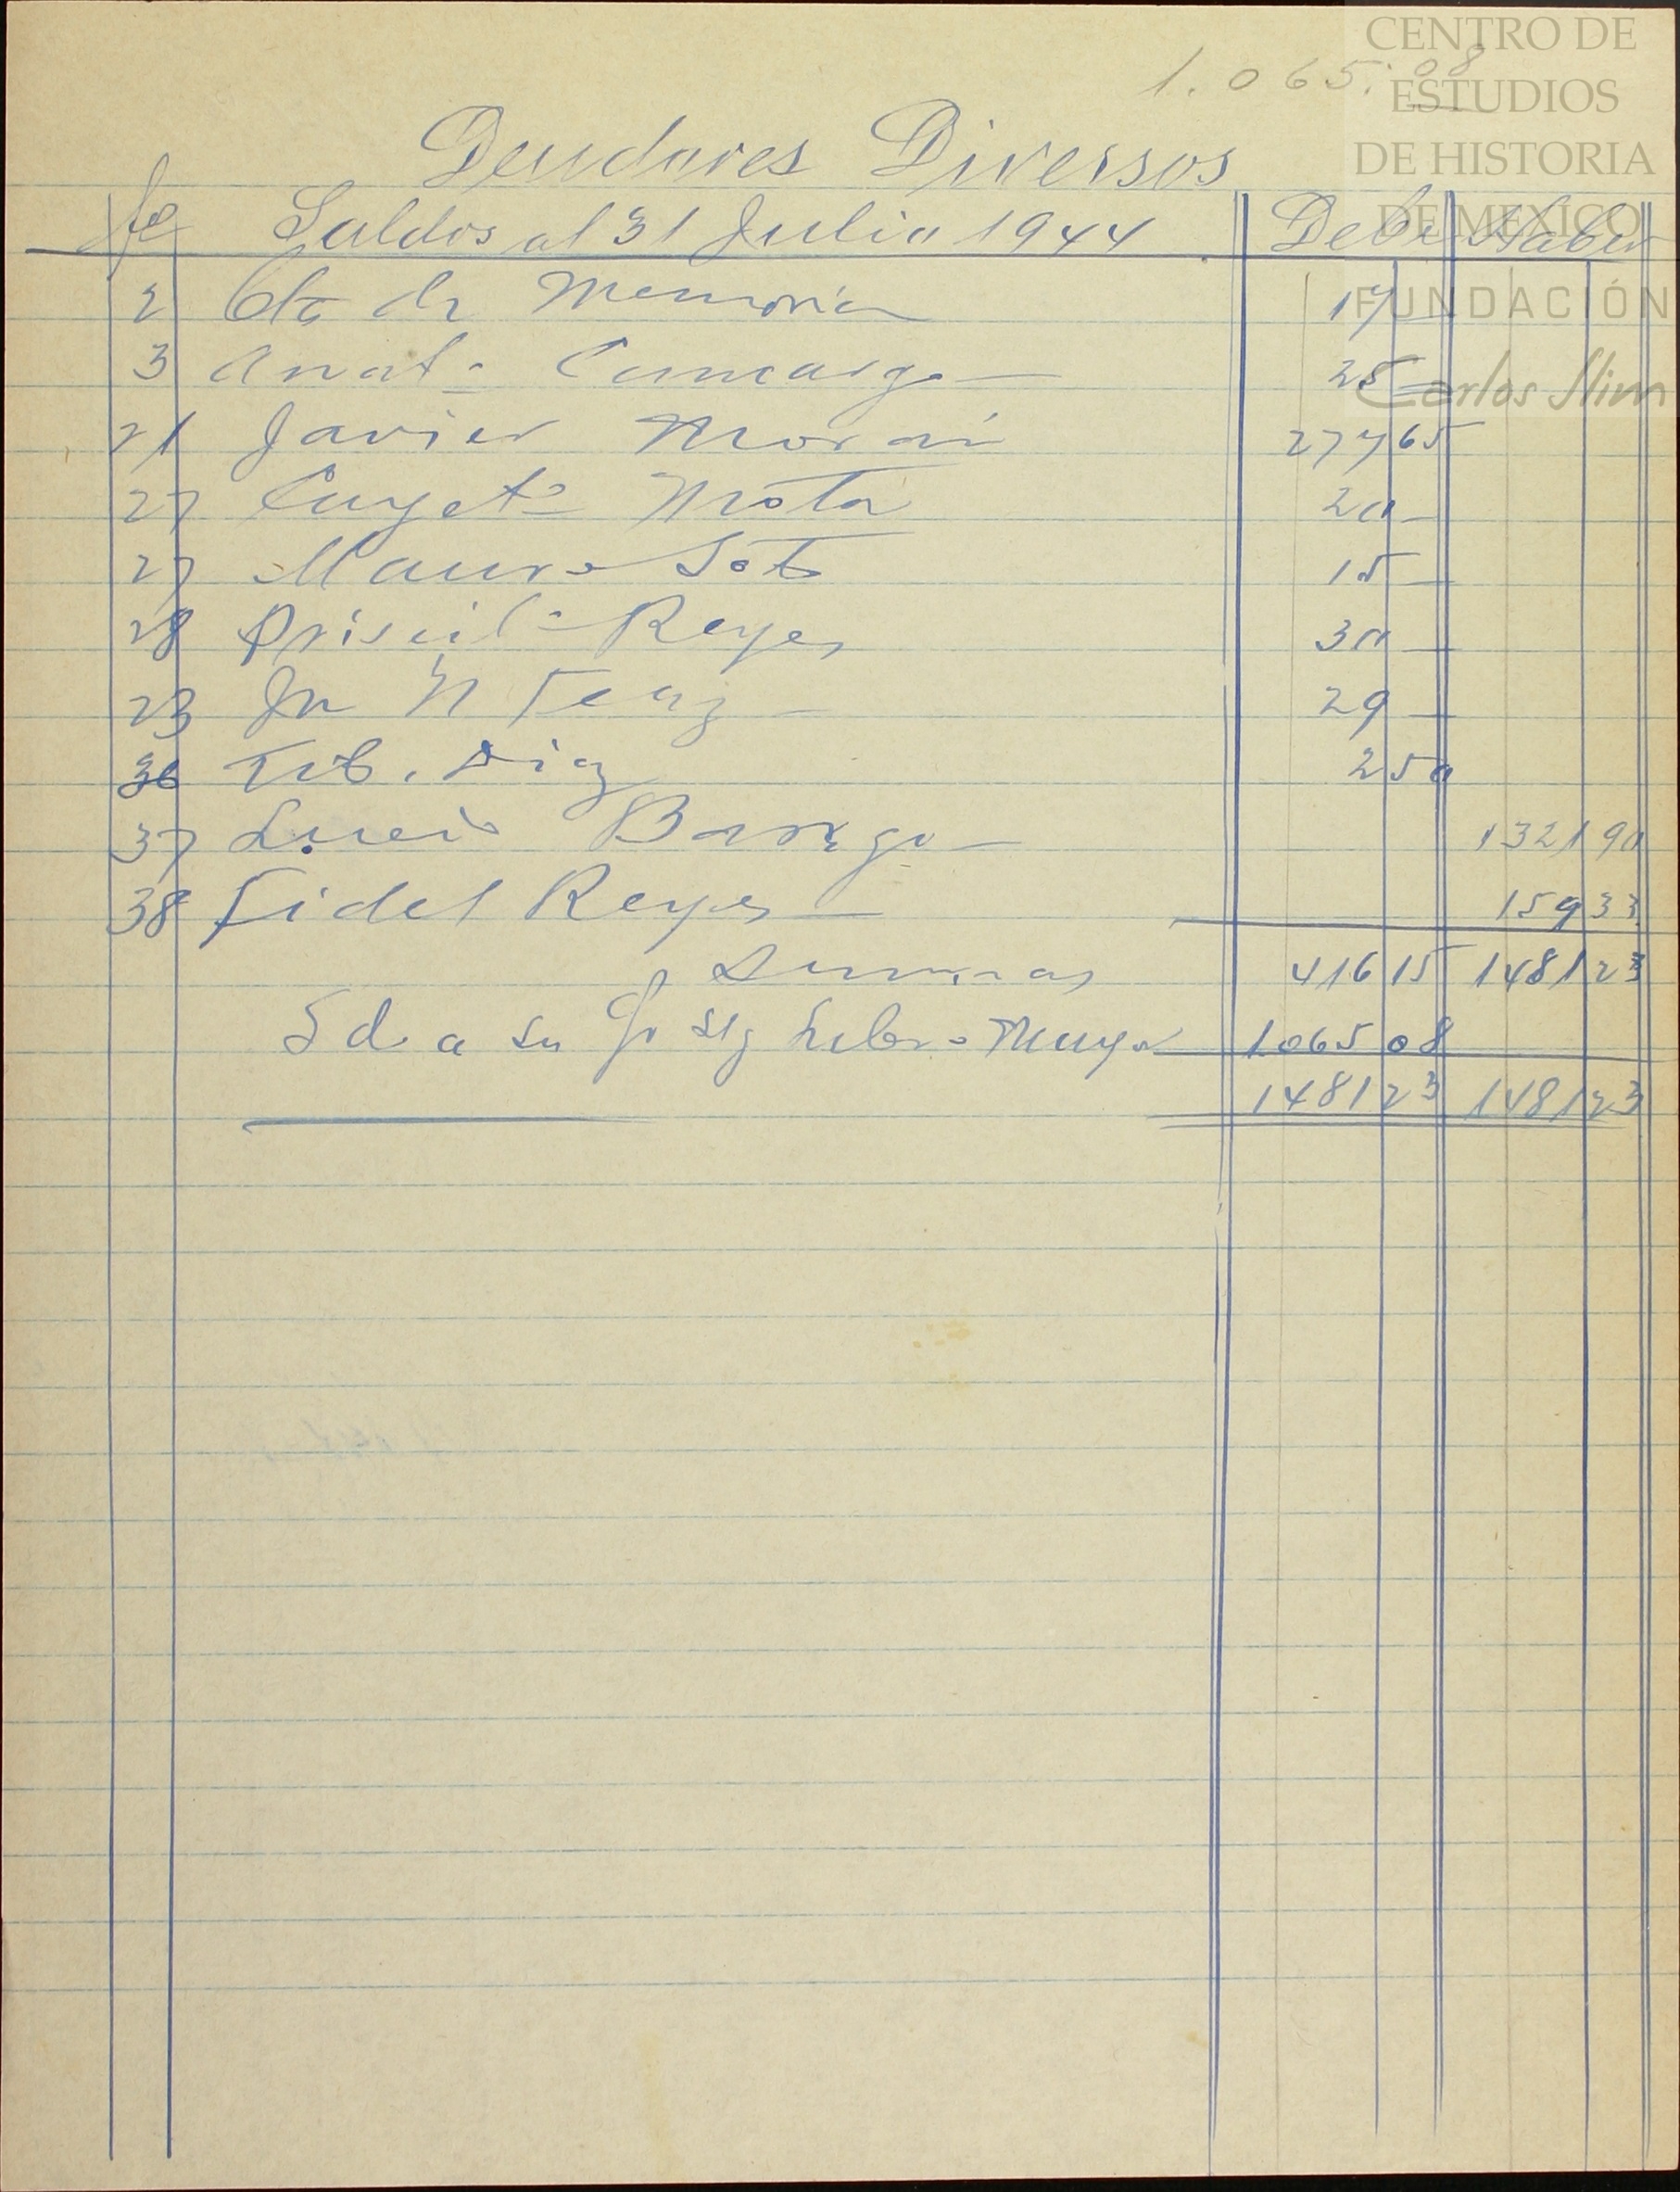 CENTRO DE
ESTUDIOS
DE HISTORIA
DE MEXICO
FUNDACIÓN
Carlos Slim
1.065.08
Deudores Diversos
fo Saldos al 31 Julio 1944 Debe Haber
2 Cta de Memoria 17
3 Anato Camargo 25
21 Javier Moran 277 65
27 Cayeto Mota 20
27 Mauro Soto 15
28 Priscilo Reyes 30
23 Jn N 29
36 Tib. Diaz 2 50
37 Lucio 1321 90
38 Fidel Reyes 159 33
Sumas 416 15 1481 23
Sd a su fo Libro Mayor 1065 08
1481 23 1481 23